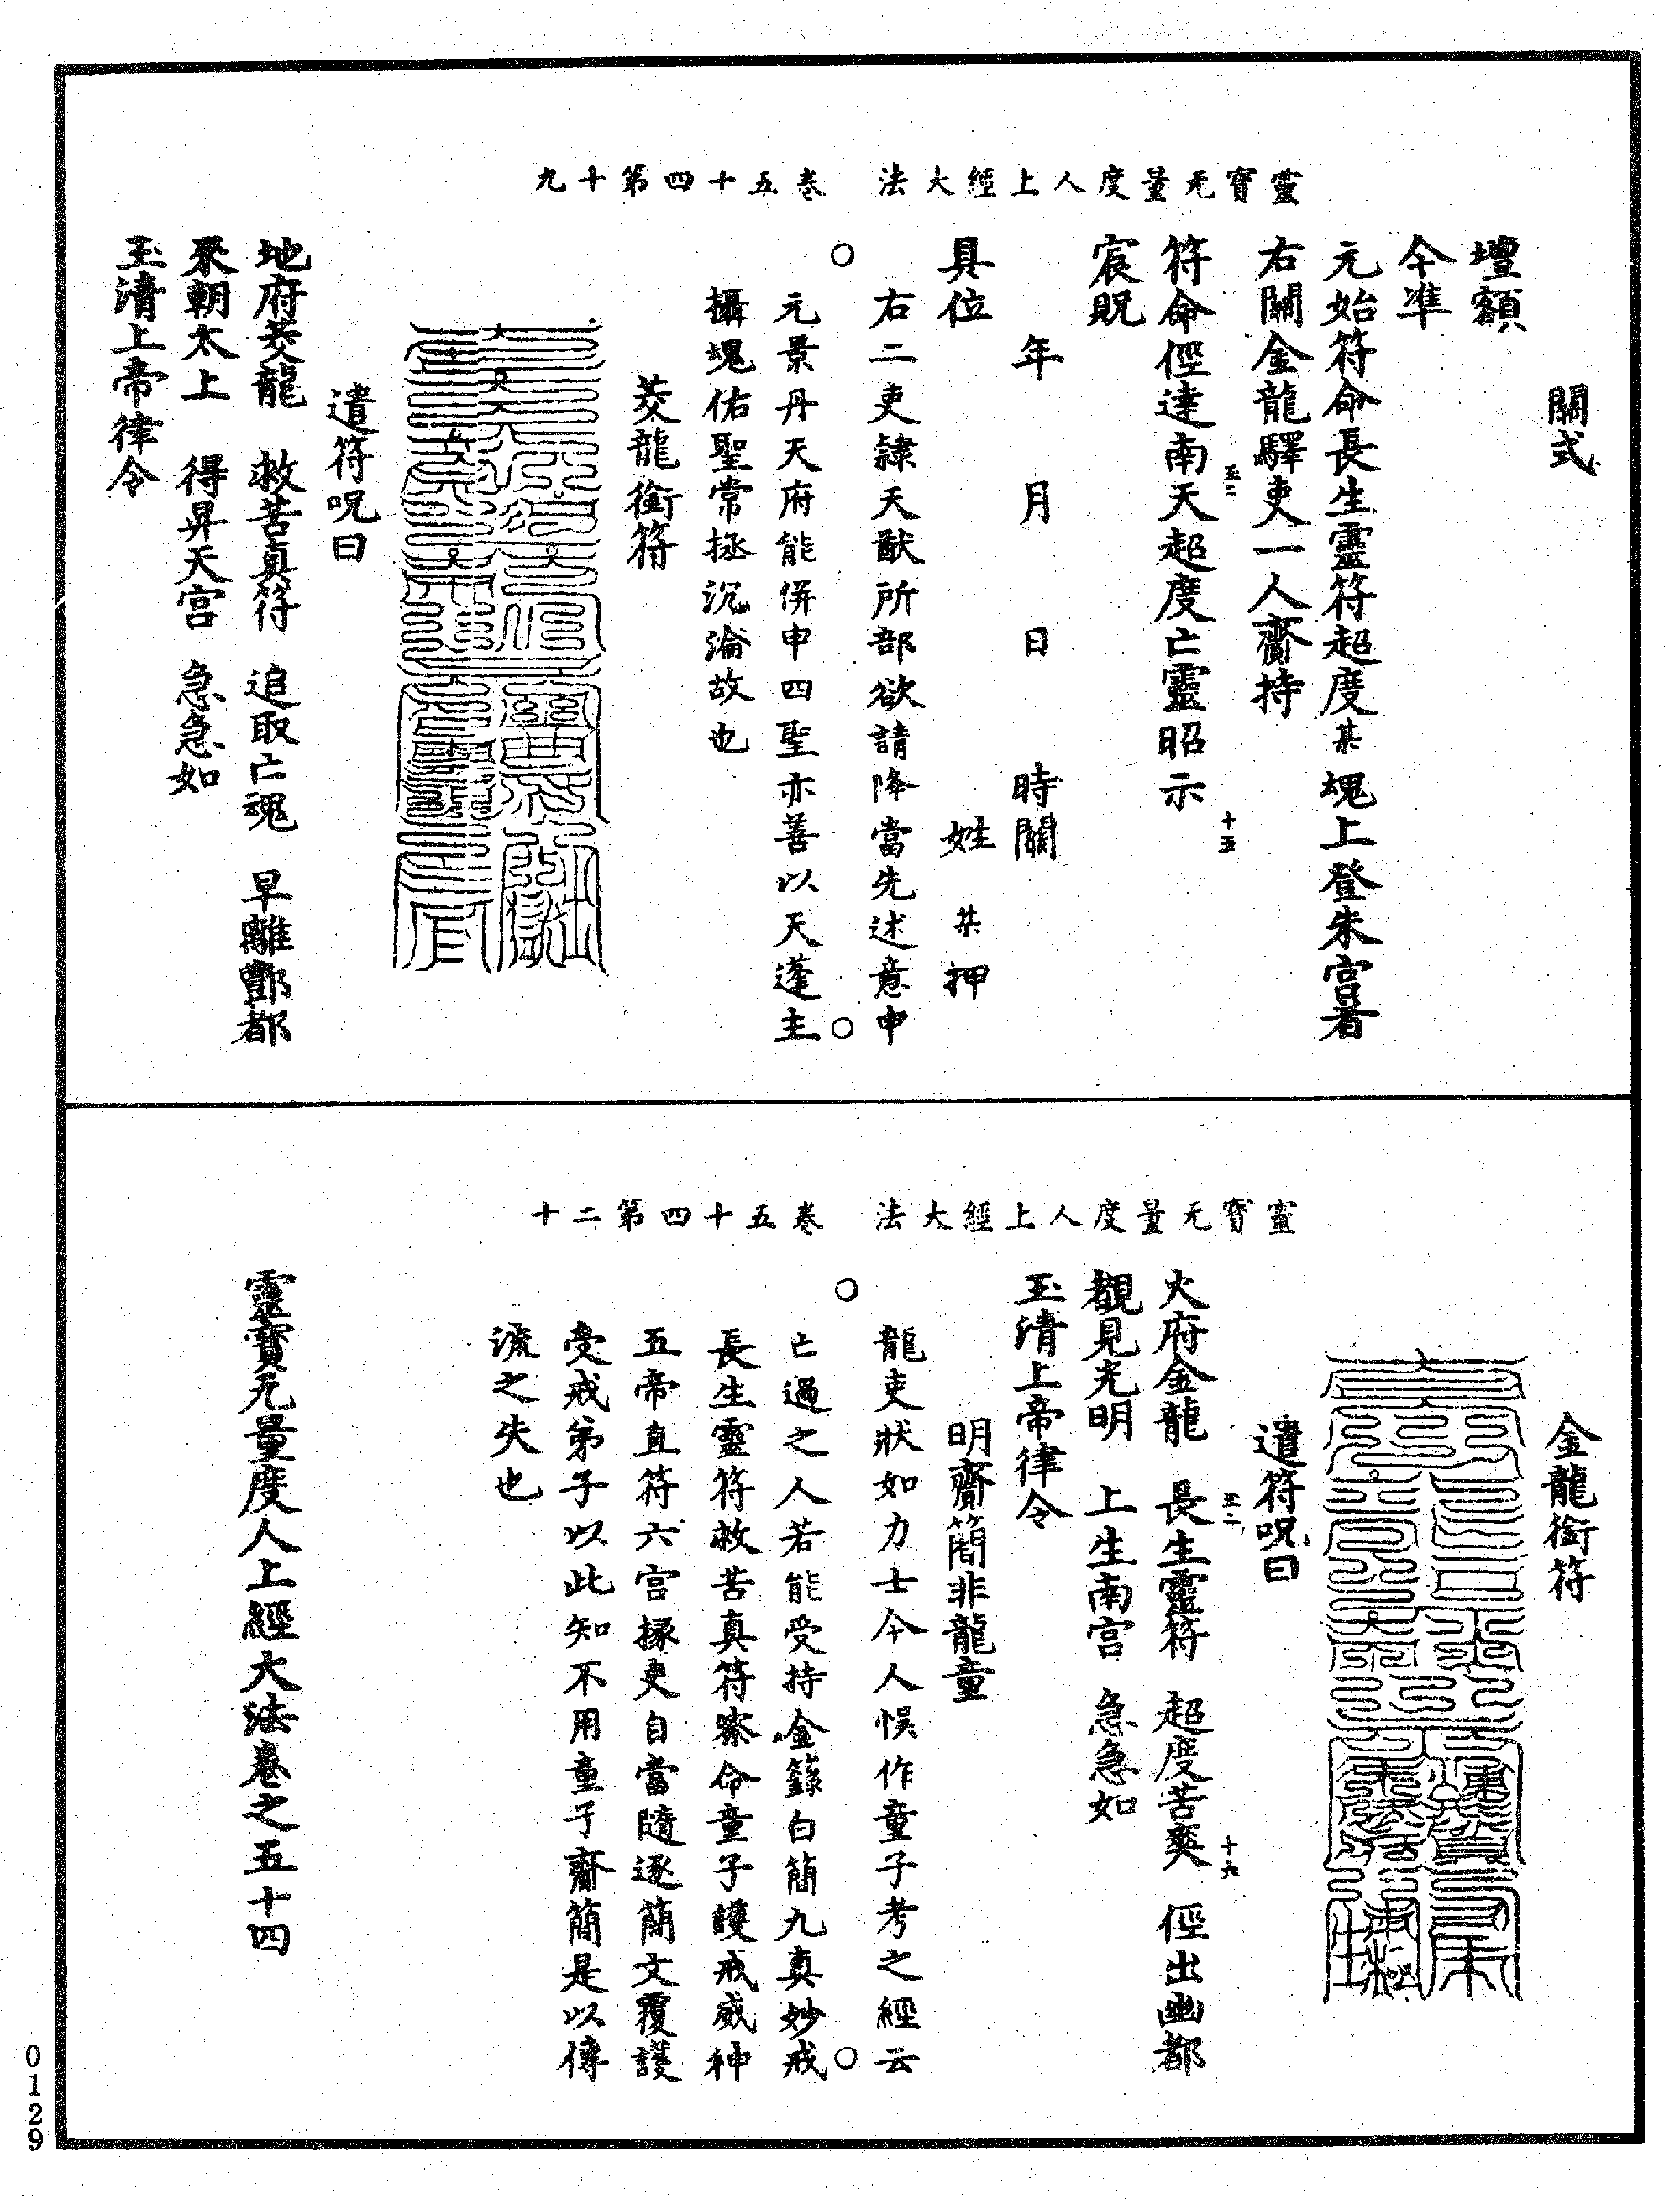 靈寶无量度人上經大法　卷五十四第十九
關式
壇額
今准
元始符命長生靈符超度某魂上登朱宮著
右關金龍驛吏一人齎持
五二　十五
符命徑達南天超度亡靈昭示
宸貺
年　月　日　時關
具位　姓　某押
右二吏隸天猷所部欲請降當先述意申
元景丹天府能併申四聖亦善以天蓬主
攝魂佑聖常拯沉淪故也
茭龍銜符
遣符呪曰
地府茭龍　救苦真符　追取亡魂　早離酆都
來朝太上　得昇天宮　急急如
玉清上帝律令
靈寶无量度人上經大法　卷五十四第二十
金龍銜符
遣符呪曰
五二　十六
火府金龍　長生靈符　超度苦爽　徑出幽都
覩見光明　上生南宮　急急如
玉清上帝律令
明齎簡非龍童
龍吏狀如力士今人悞作童子考之經云
亡過之人若能受持金籙白簡九真妙戒
長生靈符救苦真符察命童子護戒威神
五帝直符六宮掾吏自當隨逐簡文覆護
受戒弟子以此知不用童子齎簡是以傳
流之失也
靈寶无量度人上經大法卷之五十四
0129